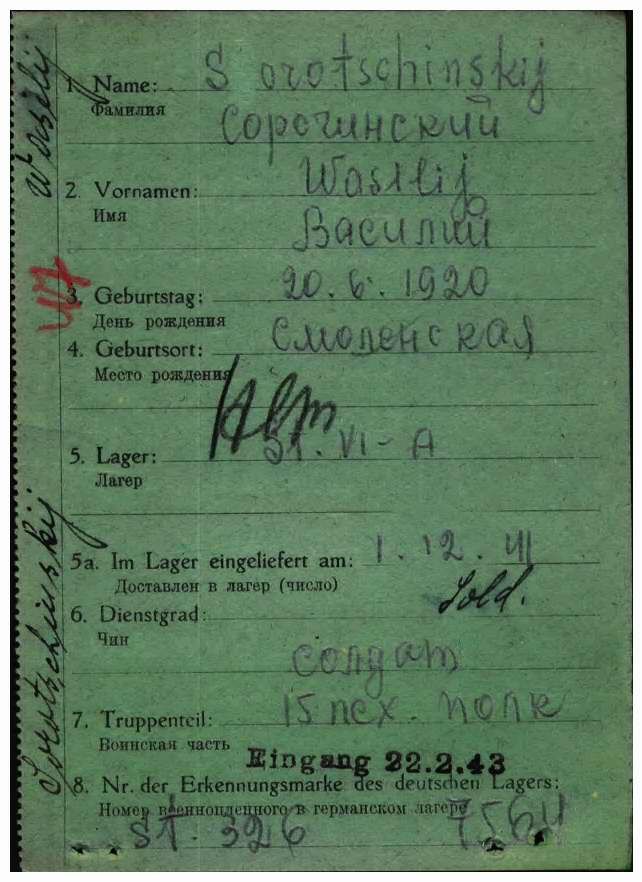 Sorotschinskij Wasilij
1. Name: Sorotschinskij
Фамилия Сорочинский
2. Vornamen: Wasilij
Имя
Василий
47
3. Geburtstag: 20.6.1920
День рождения
4. Geburtsort: Смоленская
Место рождения
5. Lager: St. VI-A
Лагер
5a. Im Lager eingeliefert am: 1.12.41
Доставлен в лагер (число)
Sold.
6. Dienstgrad:
Чин
солдат
7. Truppenteil: 15 пех. полк
Воинская часть
Eingang 22.2.43
8. Nr. der Erkennungsmarke des deutschen Lagers:
Номер военнопленного в германском лагере
St. 326 7564